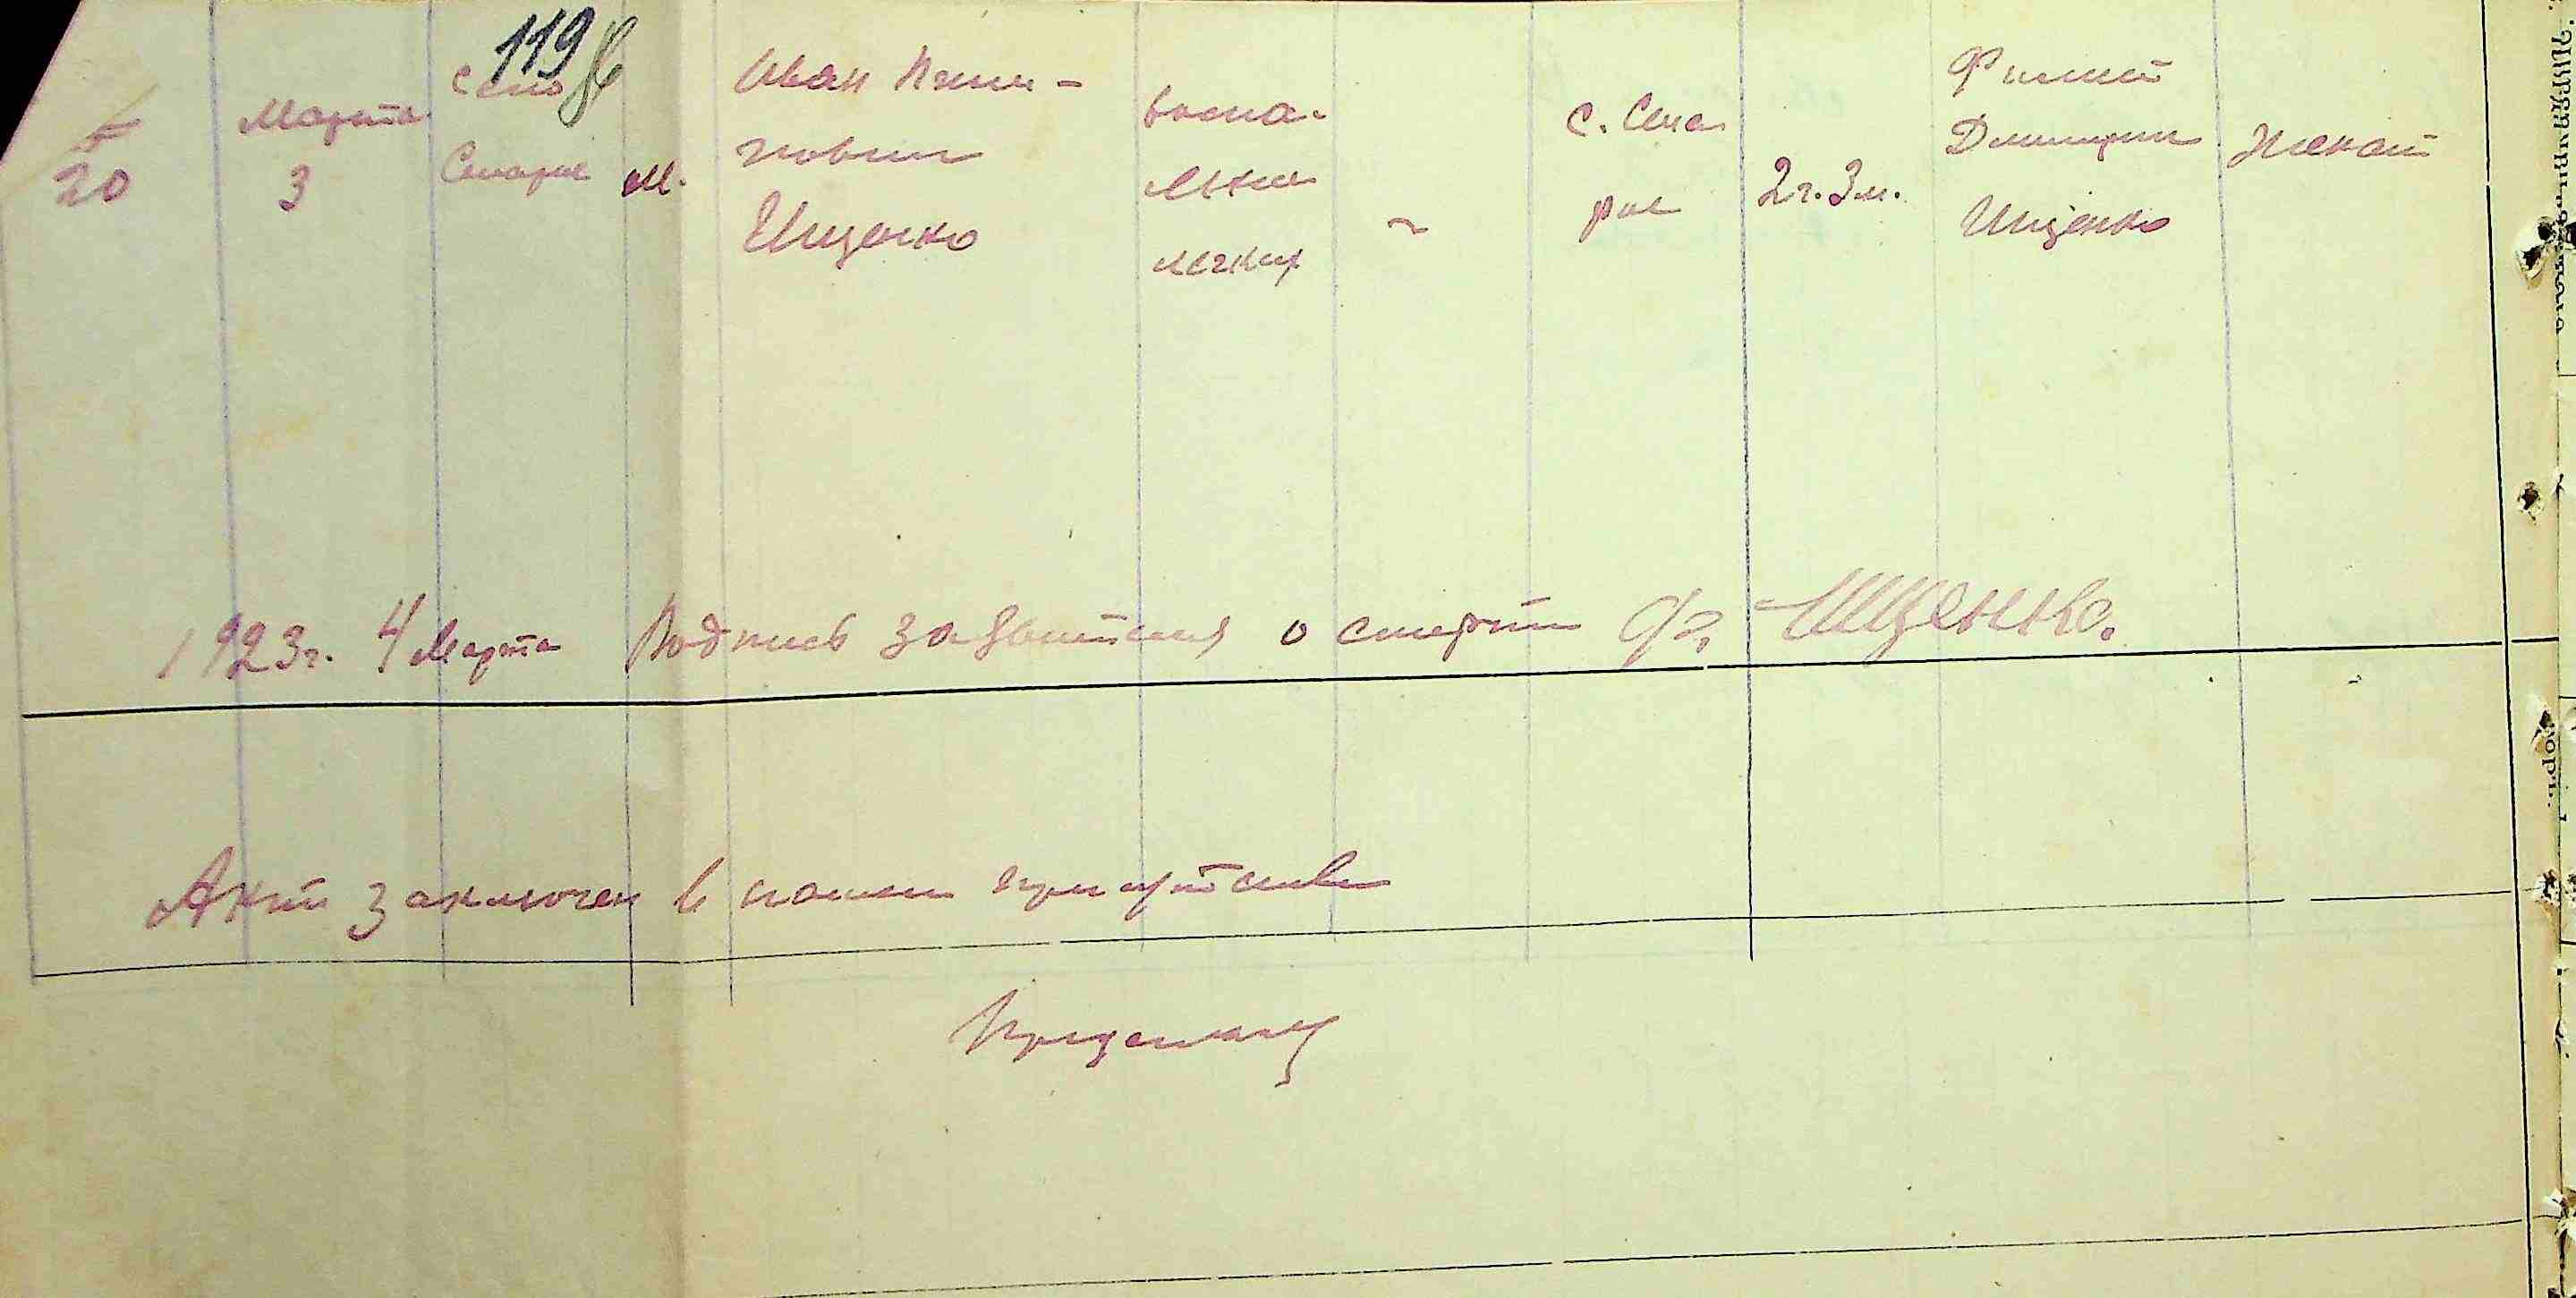 119
20
Марта
3
село
М.
Иван
Ищенко
воспа-
ление
легких
~
с. Сама
рое
2г. 3м.
Филип
Дмитрие
Ищенко
Женат
1923г. 4 Марта Подпись заявителя о смерти Фл Ищенко.
Акт заключен в нашем присутствии